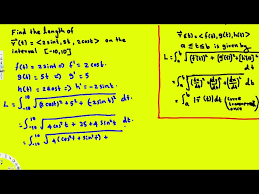 Find the length of
r⃗(t) = <2sint, 5t, 2cost> on the
interval [-10,10]
f(t) = 2sint ⇒ f' = 2cost
g(t) = 5t ⇒ g' = 5
h(t) = 2cost ⇒ h' = -2sint
L = ∫₋₁₀¹⁰ √((2cost)² + 5² + (-2sint)²) dt.
= ∫₋₁₀¹⁰ √(4cos²t + 25 + 4sin²t) dt
= ∫₋₁₀¹⁰ √(4(cos²t + sin²t) +
r⃗(t) = <f(t), g(t), h(t)>
a ≤ t ≤ b is given by
L = ∫ₐᵇ √((f'(t))² + (g'(t))² + (h'(t))²) dt
= ∫ₐᵇ √((dx/dt)² + (dy/dt)² + (dz/dt)²) dt
= ∫ₐᵇ |r⃗'(t)| dt (curve traversed once)